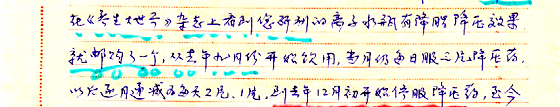 在《养生大世界》杂志上看到您研制的离子水瓶有降脂降压效果
就邮购了一个，从去年九月份开始饮用，当月仍每日服三片降压药，
以后逐月递减为每天2片、1片，到去年12月初开始停服降压药，至今